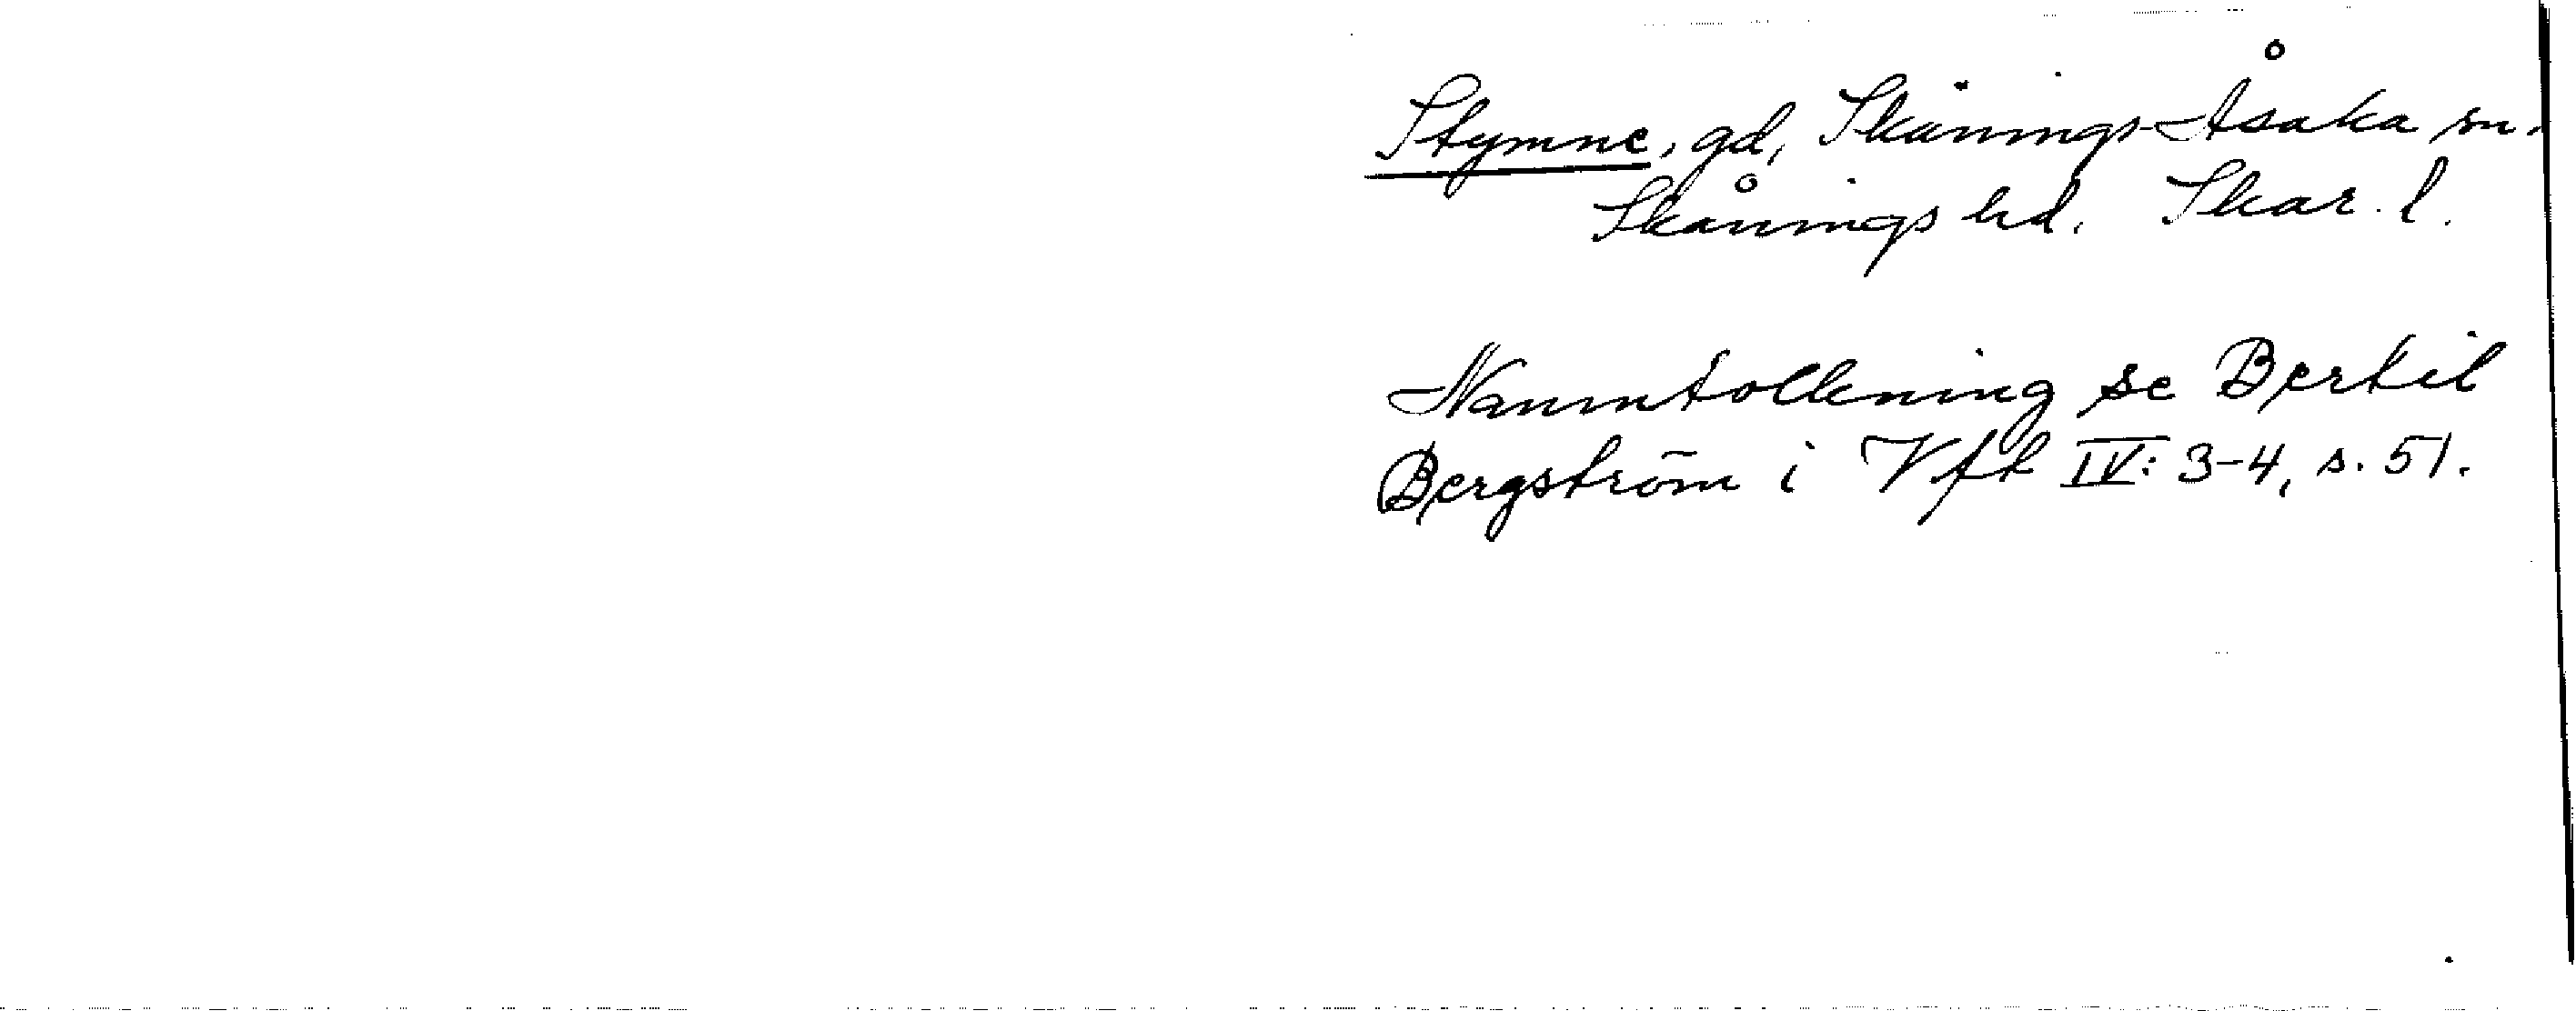 Stymne, gd, Skånings-Åsaka sn.
Skånings hd. Skar. l.
Namntolkning se Bertil
Bergström i Vft IV: 3-4, s. 51.